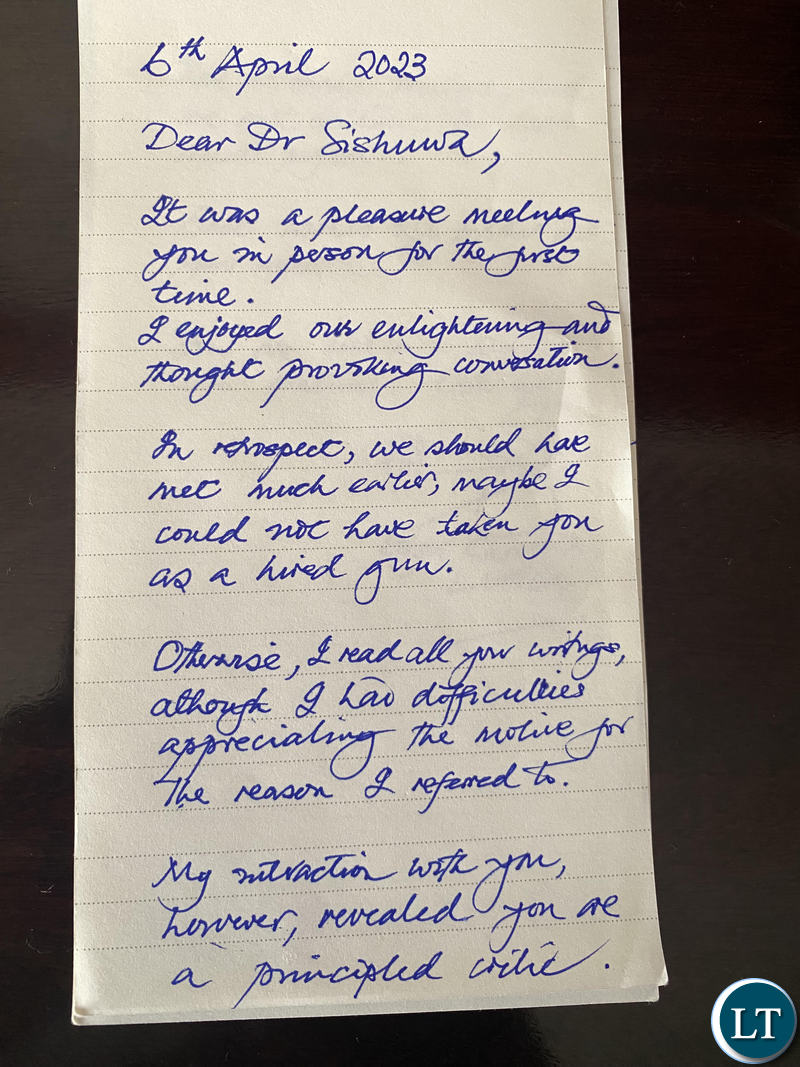 6th April 2023
Dear Dr Sishuwa,
It was a pleasure meeting
you in person for the first
time.
I enjoyed our enlightening and
thought provoking conversation.
In retrospect, we should have
met much earlier, maybe I
could not have taken you
as a hired gun.
Otherwise, I read all your writings,
although I had difficulties
appreciating the motive for
the reason I referred to.
My interaction with you,
however, revealed you are
a principled critic.
LT